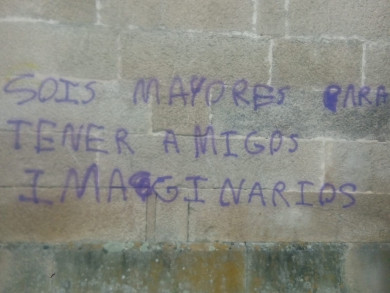 SOIS MAYORES PARA
TENER AMIGOS
IMAGINARIOS